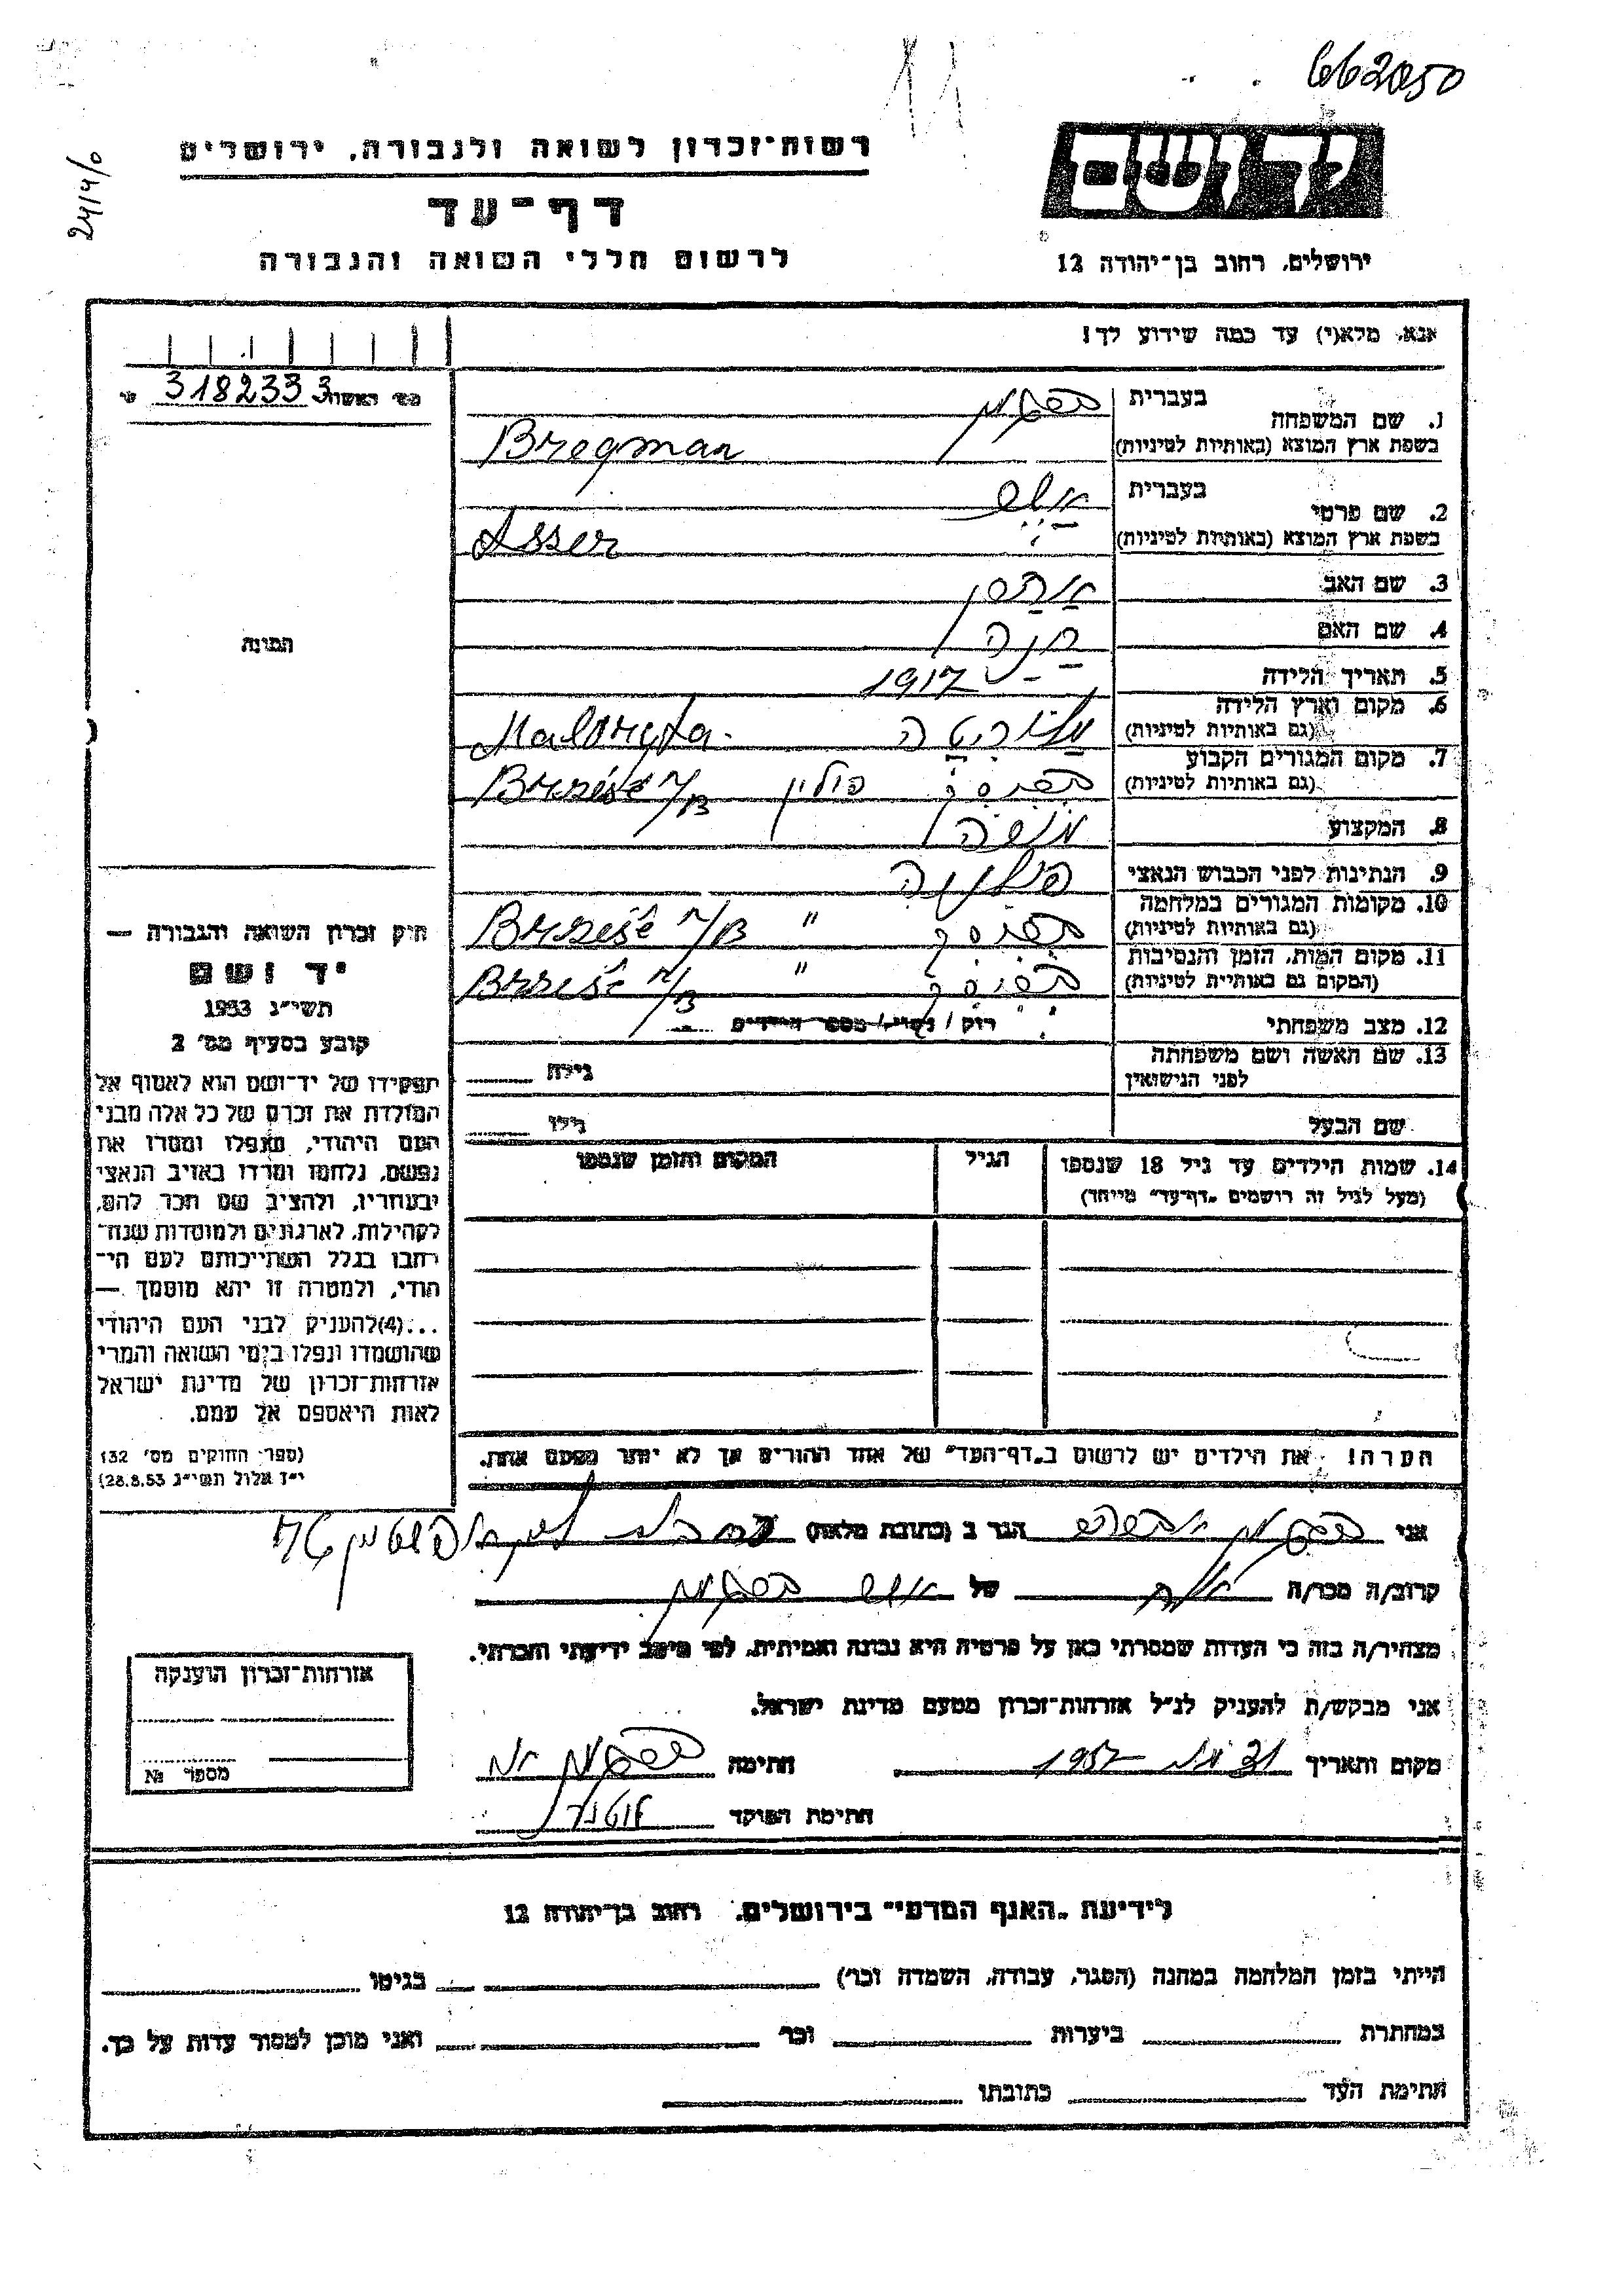 662050
24/4/0
רשות-זכרון לשואה ולגבורה, ירושלים
דף-עד
לרשום חללי השואה והגבורה
יד ושם
ירושלים, רחוב בן-יהודה 12
אנא, מלא(י) עד כמה שידוע לך!
3182333
1. שם המשפחה בעברית ברגמן
בשפת ארץ המוצא (באותיות לטיניות) Bregman
2. שם פרטי בעברית אשר
בשפת ארץ המוצא (באותיות לטיניות) Asser
3. שם האב
4. שם האם חנה
5. תאריך הלידה 1917
6. מקום וארץ הלידה (גם באותיות לטיניות) מלוריטה Maloryta
7. מקום המגורים הקבוע (גם באותיות לטיניות) בריסק פולין Brześć n/B
8. המקצוע מורה
9. הנתינות לפני הכבוש הנאצי פולנית
10. מקומות המגורים במלחמה (גם באותיות לטיניות) בריסק " Brześć n/B
11. מקום המות, הזמן והנסיבות (המקום גם באותיות לטיניות) בריסק " Brześć n/B
12. מצב משפחתי רווק / נשוי / מספר הילדים
13. שם האשה ושם משפחתה לפני הנישואין גילה
שם הבעל גילו
14. שמות הילדים עד גיל 18 שנספו הגיל המקום והזמן שנספו
(מעל לגיל זה רושמים "דף-עד" מיוחד)
הערה! את הילדים יש לרשום ב"דף-העד" של אחד ההורים אך לא יותר מפעם אחת.
התמונה
חוק זכרון השואה והגבורה —
יד ושם
תשי"ג 1953
קובע בסעיף מס' 2
תפקידו של יד-ושם הוא לאסוף אל
המולדת את זכרם של כל אלה מבני
העם היהודי, שנפלו ומסרו את
נפשם, נלחמו ומרדו באויב הנאצי
ובעוזריו, ולהציב שם וזכר להם,
לקהילות, לארגונים ולמוסדות שנח-
רבו בגלל השתייכותם לעם הי-
הודי, ולמטרה זו יהא מוסמך —
...(4) להעניק לבני העם היהודי
שהושמדו ונפלו בימי השואה והמרי
אזרחות-זכרון של מדינת ישראל
לאות היאספם אל עמם.
(ספר החוקים מס' 132
י"ז אלול תשי"ג 28.8.53)
אני ברגמן הגר ב (כתובת מלאה)
קרוב/ה מכר/ה אח של אשר ברגמן
מצהיר/ה בזה כי העדות שמסרתי כאן על פרטיה היא נכונה ואמיתית, לפי מיטב ידיעתי והכרתי.
אני מבקש/ת להעניק לנ"ל אזרחות-זכרון מטעם מדינת ישראל.
מקום ותאריך 1957 חתימה ברגמן
חתימת הפוקד
אזרחות-זכרון הוענקה
מספר №
לידיעת "האגף המדעי" בירושלים, רחוב בן-יהודה 12
הייתי בזמן המלחמה במחנה (הסגר, עבודה, השמדה וכו') בגיטו
במחתרת ביערות וכו' ואני מוכן למסור עדות על כך.
חתימת העד כתובתו